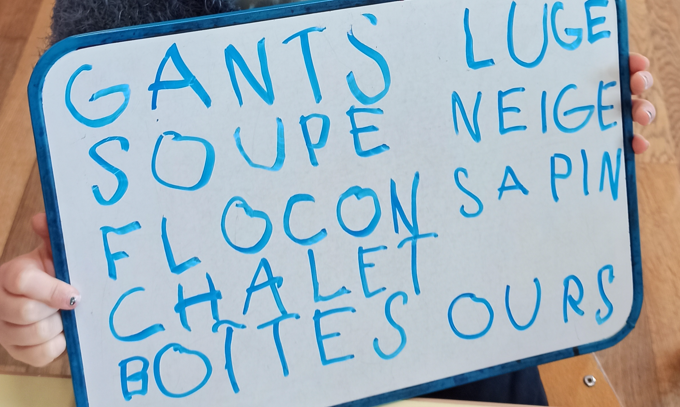 GANTS LUGE
SOUPE NEIGE
FLOCON SAPIN
CHALET
BOITES OURS